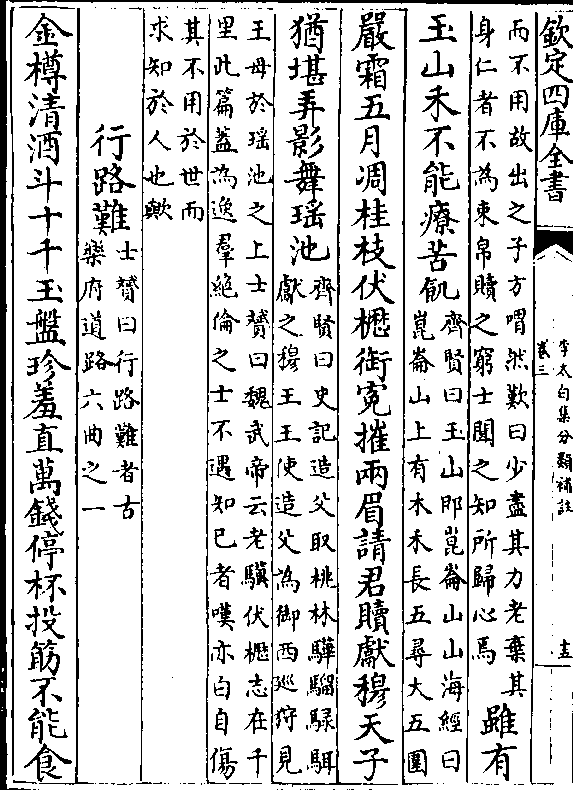 欽定四庫全書
李太白集分類補註
卷三
十五
而不用故出之子方喟然歎曰少盡其力老棄其
身仁者不為束帛贖之窮士聞之知所歸心焉
雖有
玉山禾不能療苦飢
齊賢曰玉山即崑崙山山海經曰
崑崙山上有木禾長五尋大五圍
嚴霜五月凋桂枝伏櫪銜寃摧兩眉請君贖獻穆天子
猶堪弄影舞瑶池
齊賢曰史記造父取桃林驊騮騄駬
獻之穆王王使造父為御西廵狩見
王母於瑶池之上士贇曰魏武帝云老驥伏櫪志在千
里此篇蓋為逸羣絶倫之士不遇知已者嘆亦白自傷
其不用於世而
求知於人也歟
行路難
士贇曰行路難者古
樂府道路六曲之一
金樽清酒斗十千玉盤珍羞直萬錢停杯投筯不能食